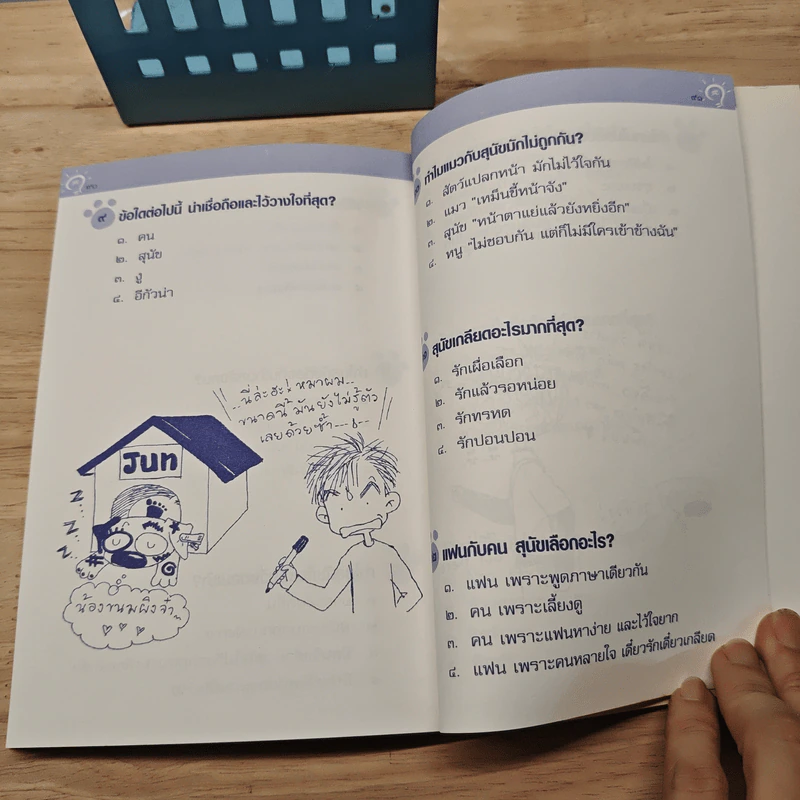 ๙ ข้อใดต่อไปนี้ น่าเชื่อถือและไว้วางใจที่สุด?
๑. คน
๒. สุนัข
๓. งู
๔. อีกัวน่า
..นี่ล่ะฮะ! หมาผม..
ขนาดนี้ มันยังไม่รู้ตัว
เลยด้วยซ้ำ
Jun
z z z z
น้องขนมผิงจ้า
ทำไมแมวกับสุนัขมักไม่ถูกกัน?
๑. สัตว์แปลกหน้า มักไม่ไว้ใจกัน
๒. แมว "เหม็นขี้หน้าจัง"
๓. สุนัข "หน้าตาแย่แล้วยังหยิ่งอีก"
๔. หนู "ไม่ชอบกัน แต่ก็ไม่มีใครเข้าข้างฉัน"
สุนัขเกลียดอะไรมากที่สุด?
๑. รักเผื่อเลือก
๒. รักแล้วรอหน่อย
๓. รักทรหด
๔. รักปอนปอน
แฟนกับคน สุนัขเลือกอะไร?
๑. แฟน เพราะพูดภาษาเดียวกัน
๒. คน เพราะเลี้ยงดู
๓. คน เพราะแฟนหาง่าย และไว้ใจยาก
๔. แฟน เพราะคนหลายใจ เดี๋ยวรักเดี๋ยวเกลียด